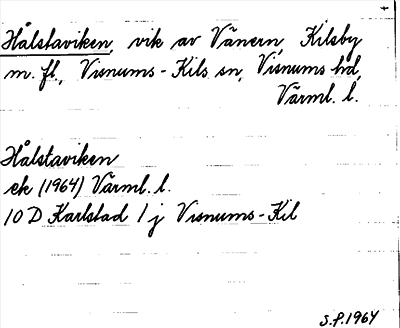 Hålstaviken, vik av Vänern, Kilsby
m. fl., Visnums-Kils sn, Visnums hd,
Värml. l.
Hålstaviken
ek (1964) Värml. l.
10 D Karlstad 1 j Visnums-Kil
S.P. 1964